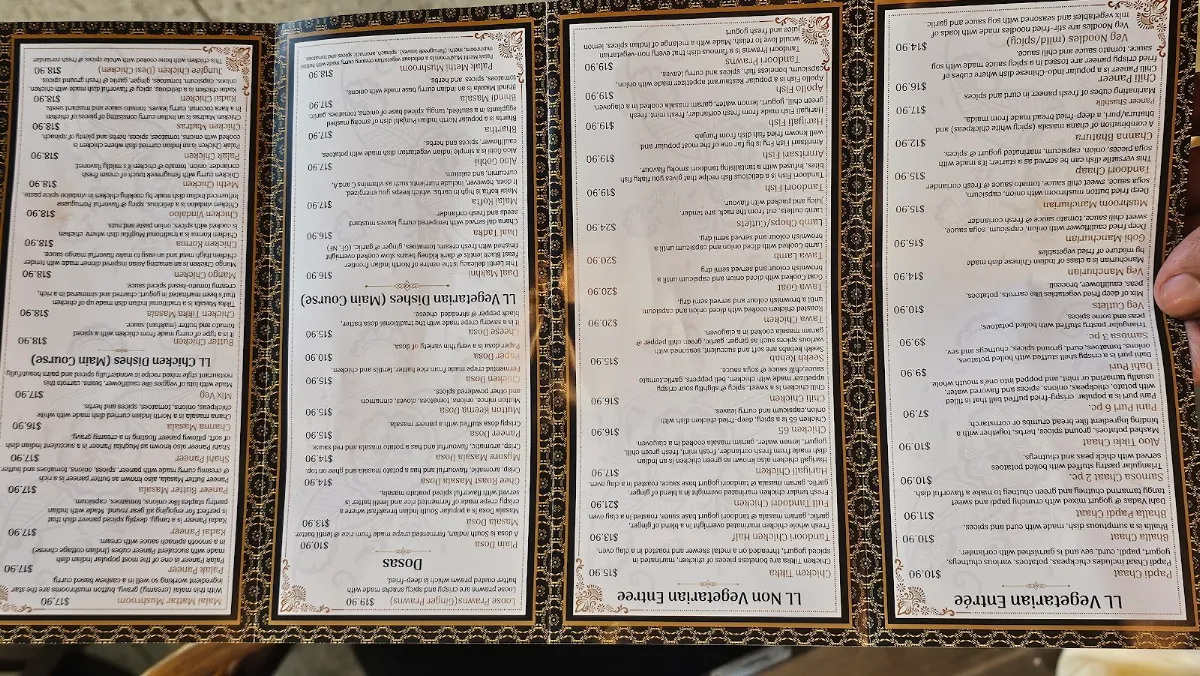 LL Vegetarian Entrée
Papdi Chaat $10.90
Papdi Chaat includes chickpeas, potatoes, various chutneys,
yogurt, papdi, curd, sev and is garnished with coriander.
Bhalla $10.90
Bhalla is a sumptuous dish, made with curd and spices.
Bhalla Papdi Chaat $11.90
Dahi Vadas & yogurt mixed with crunchy papdi and sweet
tangy tamarind chutney and green chutney to make a flavorful dish.
Samosa Chaat 2 pc. $10.90
Triangular pastry stuffed with boiled potatoes
served with chick peas and chutneys.
Aloo Tikki Chaat $10.90
Mashed potatoes, ground spices, herbs, together with a
binding ingredient like bread crumbs or cornstarch.
Pani Puri 6 pc. $7.90
Pani puri is a popular crispy-fried puffed ball that is filled
with potato, chickpeas, onions, spices and flavored water,
usually tamarind or mint, and popped into one's mouth whole.
Dahi Puri $9.90
Dahi puri is a crispy shell stuffed with boiled potatoes,
onions, tomatoes, curd, ground spices, chutneys and sev.
Samosa 3 pc $9.90
Triangular pastry stuffed with boiled potatoes,
peas and some spices.
Veg Cutlets $10.90
Mix of deep fried vegetables like carrots, potatoes,
peas, cauliflower, broccoli.
Veg Manchurian $14.90
Manchurian is a class of Indian Chinese dish made
by mixture of fried vegetables
Gobi Manchurian $15.90
Deep fried cauliflower with onion, capsicum, soya sauce,
sweet chili sauce, tomato sauce & fresh coriander
Mushroom Manchurian $15.90
Deep fried button mushroom with onion, capsicum,
soya sauce, sweet chili sauce, tomato sauce & fresh coriander
Tandoori Chaap $15.90
This versatile dish can be served as a starter. It's made with
soya pieces, onion, capsicum, marinated yogurt & spices.
Channa Bhatura $12.90
A combination of chana masala (spicy white chickpeas) and
bhatura/puri, a deep-fried bread made from maida.
Paneer Shashlik $17.90
Marinating cubes of fresh paneer in curd and spices
Chili Paneer $16.90
Chili Paneer is a popular Indo-Chinese dish where cubes of
fried crispy paneer are tossed in a spicy sauce made with soy
sauce, tomato sauce and chili sauce.
Veg Noodles (mild/spicy) $14.90
Veg Noodles are stir-fried noodles made with loads of
mix vegetables and seasoned with soy sauce and garlic.
LL Non Vegetarian Entree
Chicken Tikka $15.90
Chicken Tikka are boneless pieces of chicken, marinated in
spiced yogurt, threaded on a metal skewer and roasted in a clay oven.
Tandoori Chicken Half $13.90
Fresh whole chicken marinated overnight in a blend of ginger,
garlic, garam masala & tandoori yogurt base sauce, roasted in a clay oven
Full Tandoori Chicken $21.90
Fresh tender chicken marinated overnight in a blend of ginger,
garlic, garam masala & tandoori yogurt base sauce, roasted in a clay oven
Hariyali Chicken $17.90
Hariyali chicken also known as green chicken is an Indian
dish made from fresh coriander, fresh mint, fresh green chili,
yogurt, lemon water, garam masala cooked in a clayoven
Chicken 65 $16.90
Chicken 65 is a spicy, deep-fried chicken dish with
onion, capsicum and curry leaves.
Chili Chicken $16.90
Chili chicken is a sweet, spicy & slightly sour crispy
appetizer made with chicken, bell peppers, garlic,tomato
sauce,chile chili sauce & soya sauce.
Seekh Kebab $15.90
Seekh kebabs are soft and succulent, seasoned with
various spices such as ginger, garlic, green chili pepper &
garam masala cooked in a clayoven.
Tawa Chicken $20.90
Roasted chicken cooked with diced onion and capsicum
until a brownish colour and served semi dry.
Tawa Goat $20.90
Goat Cooked with diced onion and capsicum until a
brownish cooked and served semi dry
Tawa Lamb $20.90
Lamb Cooked with diced onion and capsicum until a
brownish cooked and served semi dry.
Lamb Chops/Cutlets $24.90
Lamb cutlets, cut from the rack, are tender,
juicy and packed with flavour.
Tandoori Fish $19.90
Tandoori Fish is a delicious fish recipe that gives you flaky fish
bites, infused with a tantalising smoky flavour.
Amritsari Fish $19.90
Amritsari Fish fry is by far one of the most popular and
well known fried fish dish from Punjab
Hariyali Fish $19.90
Hariyali Fish made from fresh coriander, fresh mint, fresh
green chili, yogurt, lemon water, garam masala cooked in a clayoven.
Apollo Fish $19.90
Apollo Fish is a popular Restaurant appetizer made with onion,
capsicum, boneless fish, spices and curry leaves.
Tandoori Prawns $19.90
Tandoori Prawns is a famous dish that every non-vegetarian
would love to relish. Made with a melange of Indian spices, lemon
juice and fresh yogurt
Loose Prawns(Ginger Prawns) $19.90
Loose prawns are crispy and spicy snacks made with
batter coated prawn which is deep-fried.
Dosas
Plain Dosa $10.90
A dosa is a South Indian, fermented crepe made from rice & lentil batter
Masala Dosa $13.90
Masala Dosa is a popular South Indian breakfast where a
crispy crepe made of fermented rice and lentil batter is
served with flavorful spiced potato masala.
Ghee Roast Masala Dosa $14.90
Crisp, aromatic, flavourful and has a potato masala and ghee on top.
Mysore Masala Dosa $14.90
Crisp, aromatic, flavourful and has a potato masala and red sauce
Paneer Dosa $15.90
Crispy dosas stuffed with a paneer masala.
Mutton Keema Dosa $15.90
Mutton mince, onions, tomatoes, cloves, cinnamon
and other powdered spices.
Chicken Dosa $15.90
Fermented crepe made from rice batter, lentils and chicken.
Paper Dosa $10.90
Paper dosa is a very thin variety of dosa.
Cheese Dosa $15.90
It is a savory crepe made with the traditional dosa batter,
black pepper & shredded cheese.
LL Vegetarian Dishes (Main Course)
Daal Makhni $16.90
This Lentil delicacy is the entree of North Indian Frontier
feast Black lentils & dark kidney beans slow cooked overnight
finished with fresh cream, tomatoes, ginger & garlic. (GF, NF)
Daal Tadka $16.90
Chana dal served with tempering curry leaves mustard
seeds and fresh coriander
Malai Kofta $17.90
Malai kofta is high in carbs, which keeps you energized.
It does, however, include nutrients such as vitamins C and A,
curcumin, and calcium
Aloo Gobhi $17.90
Aloo Gobi is a simple Indian vegetarian dish made with potatoes,
cauliflower, spices and herbs.
Bhartha $17.90
Bharta is a popular North Indian Punjabi dish of smoky mashed
eggplants in a sautéed, tangy, spiced base of onions, tomatoes, garlic.
Bhindi Masala $17.90
Bhindi Masala is an Indian curry base made with onions,
tomatoes, spices, and herbs.
Palak Methi Mushroom $18.90
Palak Methi Mushroom is a delicious vegetarian creamy curry made with
mushrooms, methi (fenugreek leaves), spinach, aromatic spices and
Malai Mattar Mushroom $17.90
With this malai (creamy) gravy, button mushrooms are the star
ingredient working so well in a cashew based curry.
Palak Paneer $17.90
Palak Paneer is one of the most popular Indian dish
made with succulent Paneer cubes (Indian cottage cheese)
in a smooth spinach sauce with cream.
Kadai Paneer $17.90
Kadai Paneer is a tangy, deeply spiced paneer dish that
is perfect for enjoying all year round. Made with Indian
pantry staples like onions, tomatoes, capsicum
Paneer Butter Masala $17.90
Paneer Butter Masala, also known as butter paneer is a rich
& creamy curry made with paneer, spices, onions, tomatoes and butter
Shahi Paneer $17.90
Shahi Paneer also known as Mughlai Paneer is a succulent Indian dish
of soft, pillowy paneer floating in a creamy gravy.
Channa Masala $16.90
Chana masala is a North Indian curried dish made with white
chickpeas, onions, tomatoes, spices and herbs.
Mix Veg $17.90
Made with lots of veggies like cauliflower, beans, carrots this
restaurant style mixed recipe is wonderfully spiced and pairs beautifully
LL Chicken Dishes (Main Course)
Butter Chicken $18.90
It is a type of curry made from chicken with a spiced
tomato and butter (makhan) sauce.
Chicken Tikka Masala $18.90
Tikka Masala is a traditional Indian dish made up of chicken
that's been marinated in yogurt and simmered in a rich,
creamy tomato-based spiced sauce.
Mango Chicken $18.90
Mango Chicken is an amazing Asian inspired dinner made with tender
chicken thigh meat and an easy to make flavorful mango sauce.
Chicken Korma $18.90
Chicken Korma is a traditional Mughlai dish where chicken
is cooked with spices, onion paste and nuts.
Chicken Vindaloo $18.90
Chicken vindaloo is a delicious, spicy & flavorful Portuguese
influenced Indian dish made by cooking chicken in vindaloo spice paste.
Methi Chicken $18.90
Chicken curry with fenugreek touch of cream fresh
coriander, onion, tomato & chicken it's mildly flavored.
Palak Chicken $18.90
Palak Chicken is an Indian curried dish where chicken is
cooked with onions, tomatoes, spices, herbs and plenty of spinach.
Chicken Madras $18.90
Chicken Madras is an Indian curry consisting of pieces of chicken
in a hara coconut, curry leaves, tomato sauce and mustard seeds.
Kadai Chicken $18.90
Kadai Chicken is a delicious, spicy & flavorful dish made with chicken,
onions, capsicum, tomatoes, ginger, garlic & fresh ground spices
Junglee Chicken (Desi Chicken) $18.90
This chicken with bone cooked with whole spices & fresh coriander